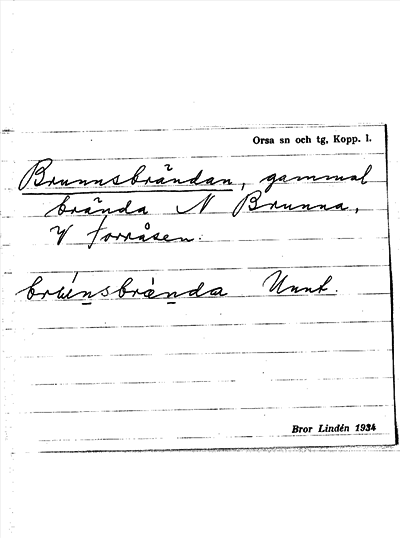 Orsa sn och tg, Kopp. l.
Brunnsbrändan, gammal
brända N Brunna,
V Torråsen.
Unnt.
Bror Lindén 1934